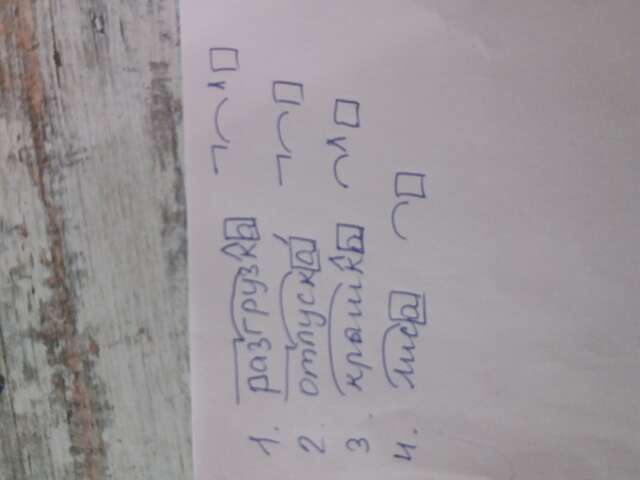 1. разгрузка
2. отпуска́
3. крышка
4. лиса